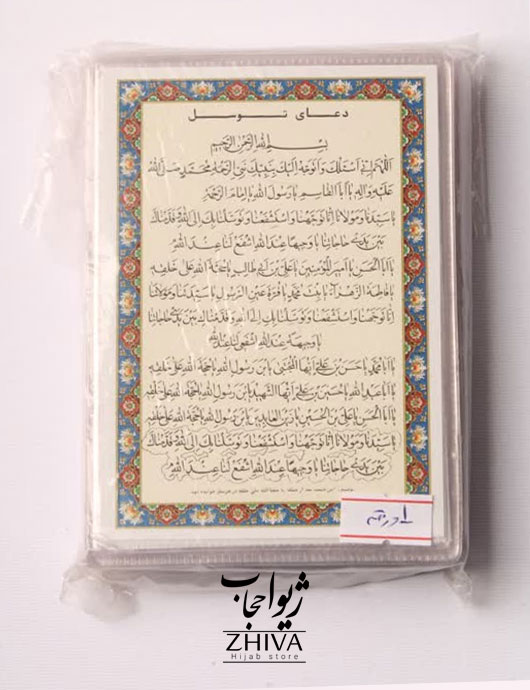 دعای توسل
بِسْمِ اللهِ الرَّحْمٰنِ الرَّحِیمِ
اَللّهُمَّ اِنّی اَسْئَلُکَ وَاَتَوَجَّهُ اِلَیْکَ بِنَبِیِّکَ نَبِیِّ الرَّحْمَةِ مُحَمَّدٍ صَلَّی اللهُ
عَلَیْهِ وَالِهِ یا اَبَا الْقاسِمِ یا رَسُولَ اللهِ یا اِمامَ الرَّحْمَةِ
یا سَیِّدَنا وَمَوْلانا اِنّا تَوَجَّهْنا وَاسْتَشْفَعْنا وَتَوَسَّلْنا بِکَ اِلَی اللهِ وَقَدَّمْناکَ
بَیْنَ یَدَیْ حاجاتِنا یا وَجیهًا عِنْدَ اللهِ اِشْفَعْ لَنا عِنْدَ اللهِ
یا اَبَا الْحَسَنِ یا اَمیرَ الْمُؤْمِنینَ یا عَلِیَّ بْنَ اَبی طالِبٍ یا حُجَّةَ اللهِ عَلی خَلْقِهِ
یا فاطِمَةُ الزَّهْراءُ یا بِنْتَ مُحَمَّدٍ یا قُرَّةَ عَیْنِ الرَّسُولِ یا سَیِّدَتَنا وَمَوْلاتَنا
اِنّا تَوَجَّهْنا وَاسْتَشْفَعْنا وَتَوَسَّلْنا بِکِ اِلَی اللهِ وَقَدَّمْناکِ بَیْنَ یَدَیْ حاجاتِنا
یا وَجیهَةً عِنْدَ اللهِ اِشْفَعی لَنا عِنْدَ اللهِ
یا اَبا مُحَمَّدٍ یا حَسَنَ بْنَ عَلِیٍّ اَیُّهَا الْمُجْتَبی یَا بْنَ رَسُولِ اللهِ یا حُجَّةَ اللهِ عَلی خَلْقِهِ
یا اَبا عَبْدِ اللهِ یا حُسَیْنَ بْنَ عَلِیٍّ اَیُّهَا الشَّهیدُ یَا بْنَ رَسُولِ اللهِ یا حُجَّةَ اللهِ عَلی خَلْقِهِ
یا اَبَا الْحَسَنِ یا عَلِیَّ بْنَ الْحُسَیْنِ یا زَیْنَ الْعابِدینَ یَا بْنَ رَسُولِ اللهِ یا حُجَّةَ اللهِ عَلی خَلْقِهِ
یا سَیِّدَنا وَمَوْلانا اِنّا تَوَجَّهْنا وَاسْتَشْفَعْنا وَتَوَسَّلْنا بِکَ اِلَی اللهِ وَقَدَّمْناکَ
بَیْنَ یَدَیْ حاجاتِنا یا وَجیهًا عِنْدَ اللهِ اِشْفَعْ لَنا عِنْدَ اللهِ
ژیوا حجاب
ZHIVA
Hijab store